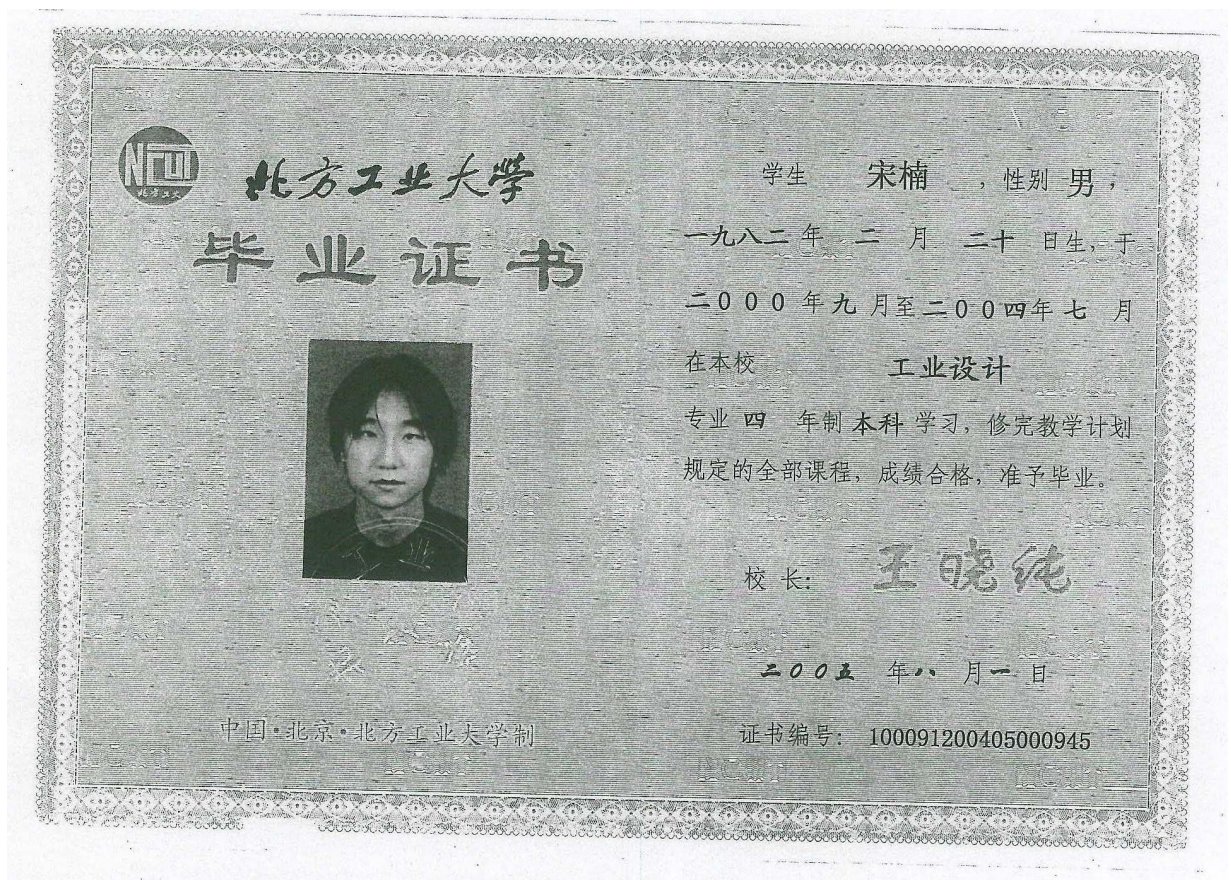 NCUT
北方工业大学
毕业证书
工业
中国·北京·北方工业大学制
学生 宋楠 ，性别 男，
一九八二年 二 月 二十 日生，于
二000年九月至二00四年七 月
在本校 工业设计
专业 四 年制 本科 学习，修完教学计划
规定的全部课程，成绩合格，准予毕业。
校 长： 王晓纯
二00五 年八 月一 日
证书编号： 100091200405000945